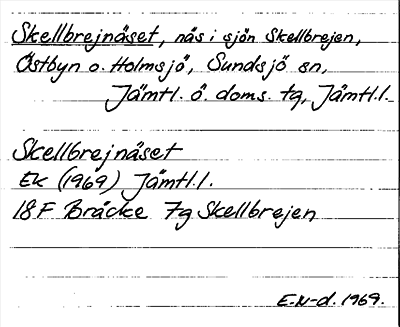 Skellbrejnäset, näs i sjön Skellbrejen,
Östbyn o. Holmsjö, Sundsjö sn,
Jämtl. ö. doms. tg, Jämtl.l.
Skellbrejnäset
Ek (1969) Jämtl.l.
18 F Bräcke 7g Skellbrejen
E.N-d. 1969.